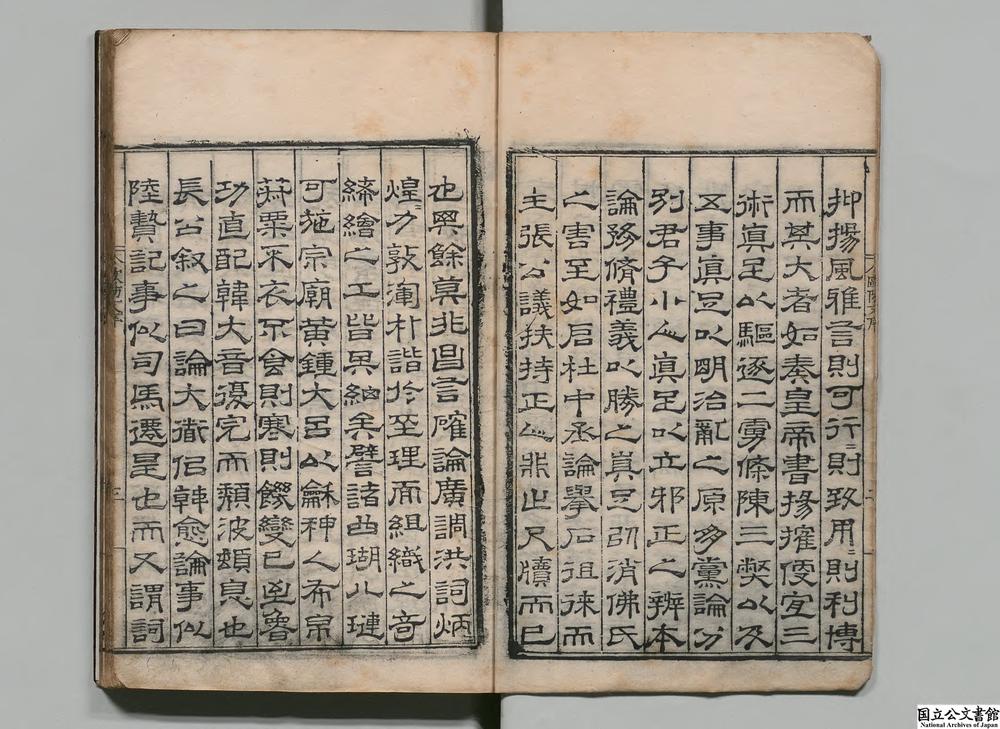 抑揚風雅言則可行〻則致用〻則利博
而其大者如奏皇帝書揚搉便宜三
術眞足以驅逐二虜條陳三弊以及
五事眞足以明治亂之原朋黨論分
別君子小人眞足以立邪正之辨本
論務脩禮義以勝之眞足以消佛氏
之害至如杜中丞論擧石徂徠而
主張公議扶持正人非止尺牘而已
也其餘莫非昌言確論廣調洪詞炳
煌〻乎敦渾朴諧於至理而組織之奇
絺繪之工皆絀矣譬諸四瑚八璉
可施宗廟黃鍾大呂以龢神人布帛
菽粟不衣不食則寒則饑變已至魯
功直配韓大音復完而頹波頓息也
長公叙之曰論大道侣韓愈論事似
陸贄記事似司馬遷是也而又謂詞
三
国立公文書館
National Archives of Japan